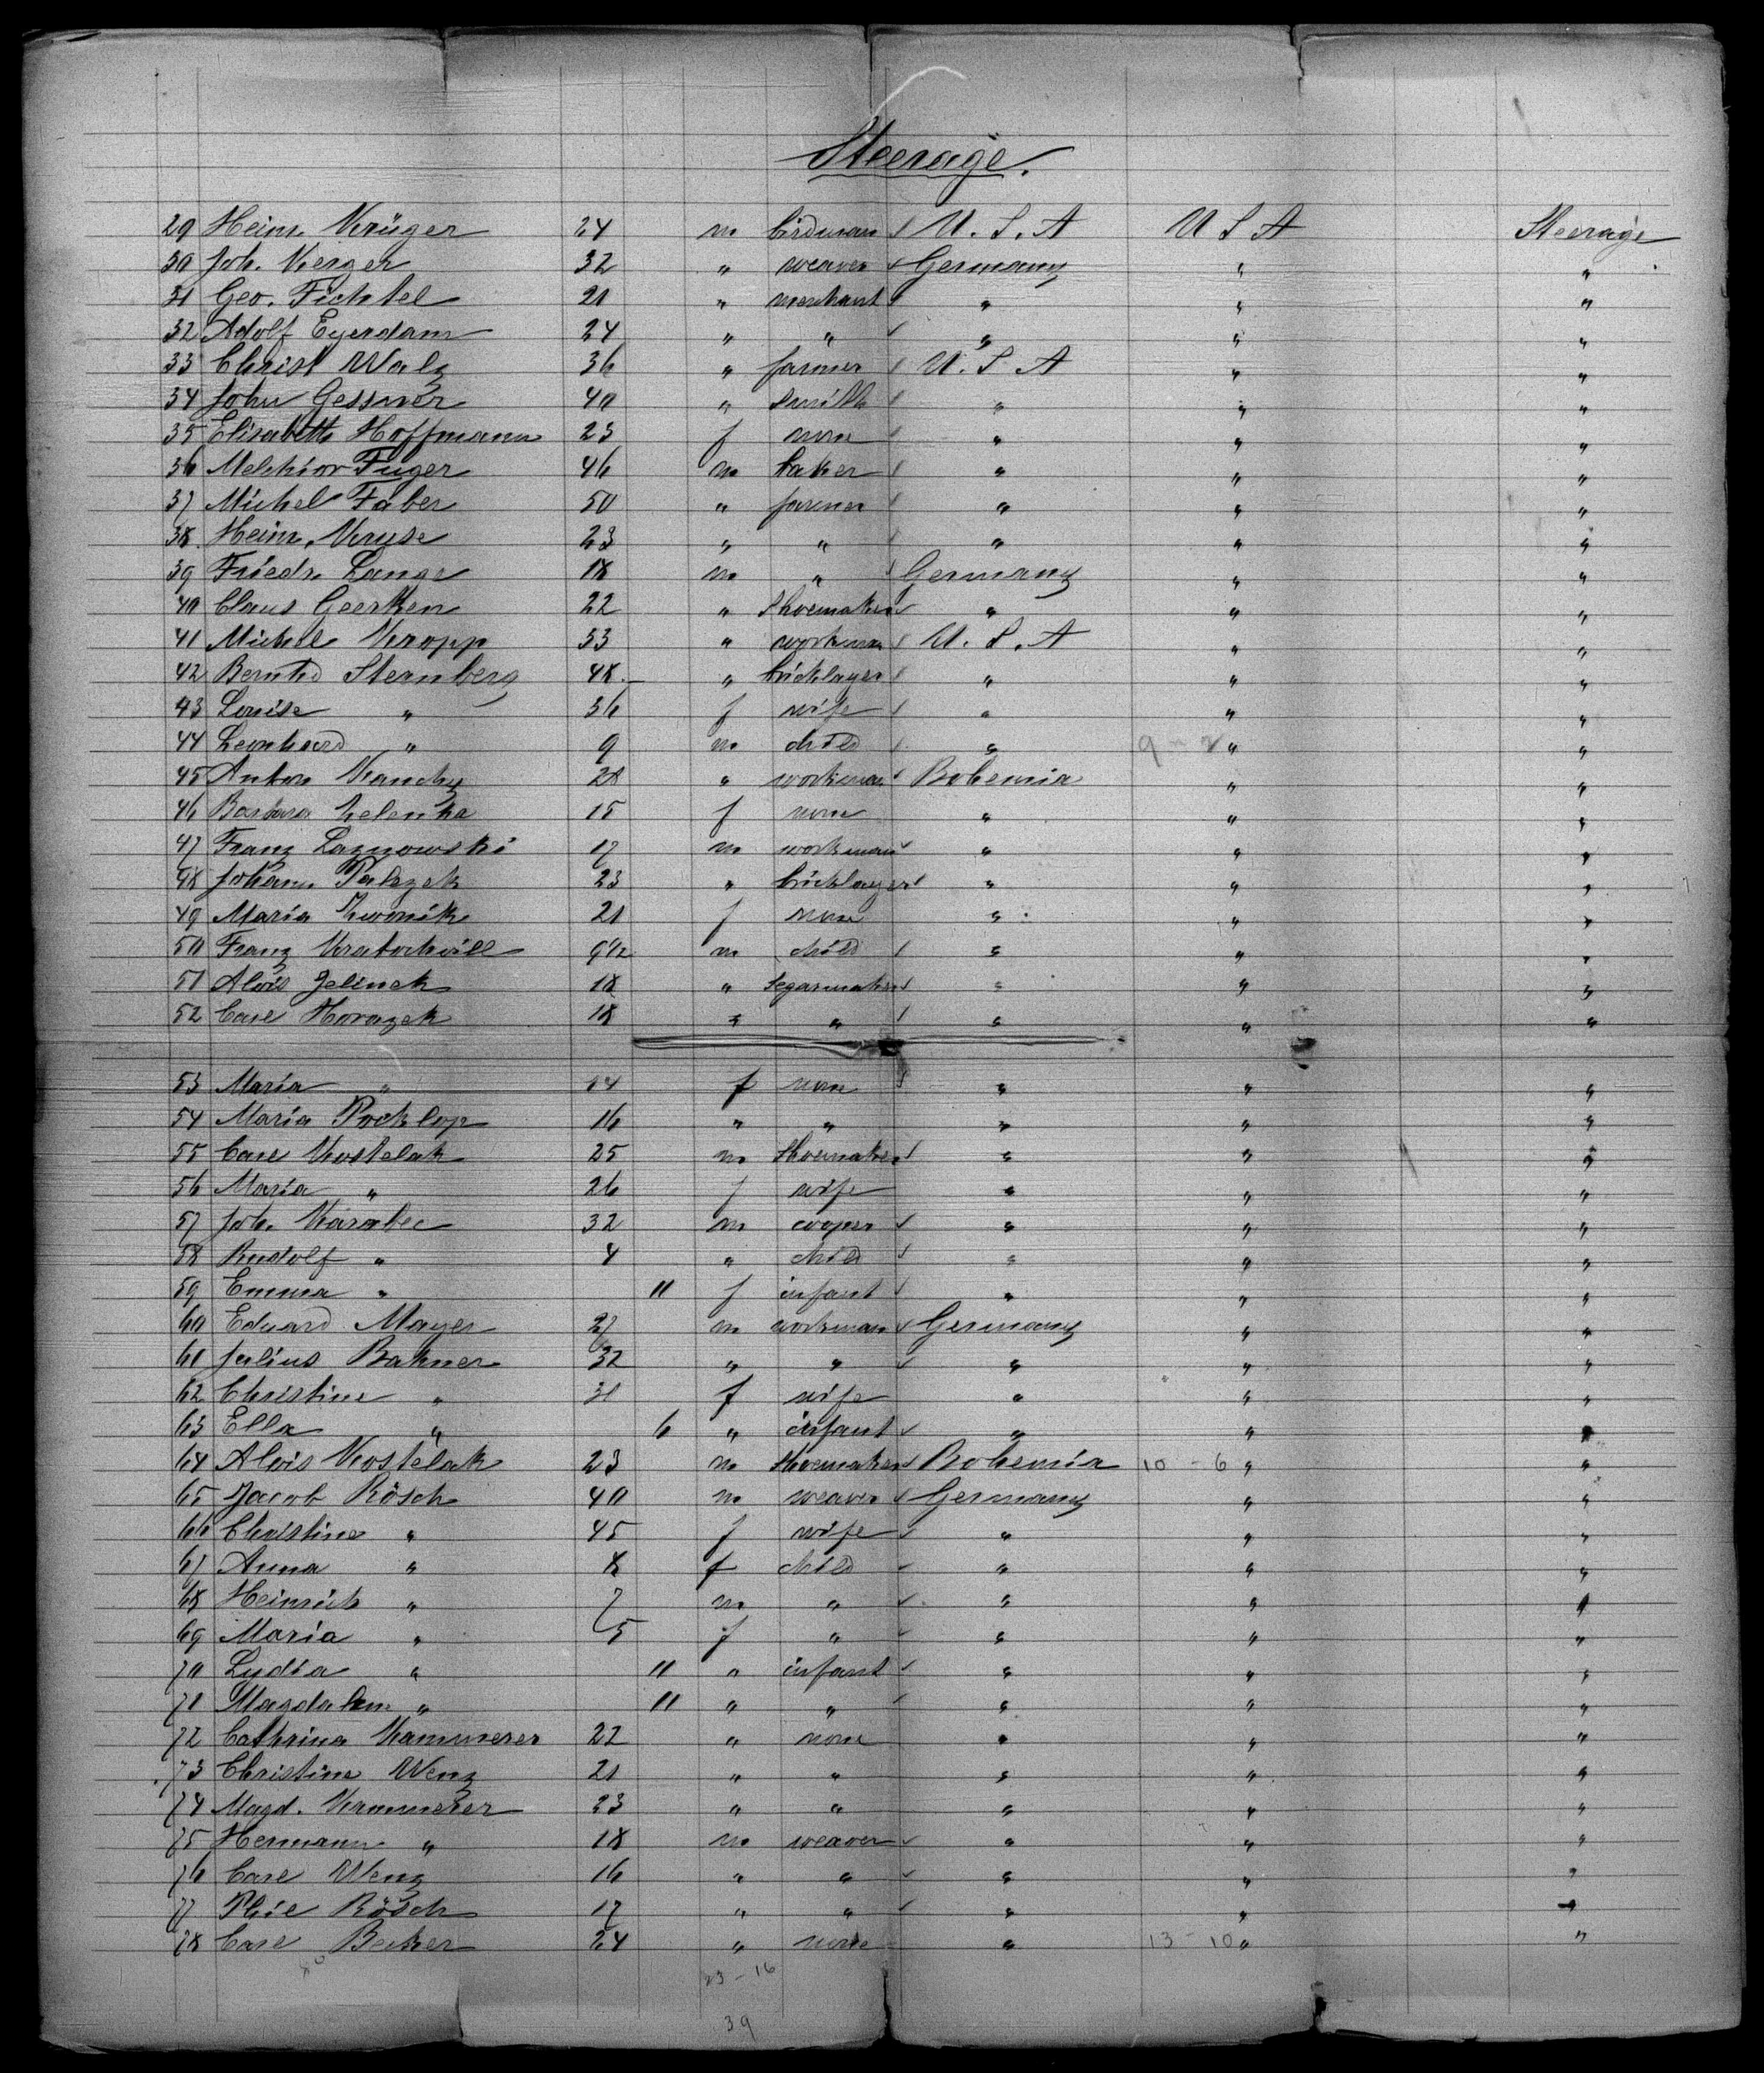 Steerage.
29 Heinr. Krüger 24 m birdman U. S. A U S A Steerage
30 Joh. Kerger 32 " weaver Germany " "
31 Geo. Fichtel 21 " merchant " " "
32 Adolf Eyerdam 24 " " " " "
33 Christ Walz 36 " farmer U. S. A " "
34 John Gessner 40 " smith " " "
35 Elisabeth Hoffmann 23 f none " " "
36 Melchior Fuger 46 m baker " " "
37 Michel Faber 50 " farmer " " "
38. Heinr. Kruse 23 " " " " "
39 Friedr. Lange 18 m " Germany " "
40 Claus Geerken 22 " shoemaker " " "
41 Michel Kropp 53 " workman U. S. A " "
42 Bernhd Sternberg 48 " bricklayer " " "
43 Louise " 36 f wife " " "
44 Leonhard " 9 m child " 9 - 2 " "
45 Anton Kanchy 28 " workman Bohemia " "
46 Barbara Zelenka 15 f none " " "
47 Franz Laznowski 17 m workman " " "
48 Johann Palezek 23 " bricklayer " " "
49 Maria Zwonik 21 f none " " "
50 Franz Kratochvill 9 1/2 m child " " "
51 Alois Jelinek 18 " segarmaker " " "
52 Carl Horazek 18 " " " " "
53 Maria " 14 f none " " "
54 Maria Pocklop 16 " " " " "
55 Carl Kostelak 25 m shoemaker " " "
56 Maria " 26 f wife " " "
57 Joh. Karabec 32 m cooper " " "
58 Rudolf " 4 " child " " "
59 Emma " 11 f infant " " "
60 Eduard Mayer 27 m workman Germany " "
61 Julius Bakner 32 " " " " "
62 Christine " 31 f wife " " "
63 Ella " 6 " infant " " "
64 Alois Kostelak 23 m shoemaker Bohemia 10 - 6 " "
65 Jacob Rösch 40 m weaver Germany " "
66 Christine " 45 f wife " " "
67 Anna " 8 f child " " "
68 Heinrich " 7 m " " " "
69 Maria " 5 f " " " "
70 Lydia " 11 " infant " " "
71 Magdalene " 11 " " " " "
72 Cathrina Kammerer 22 " none " " "
73 Christine Wenz 21 " " " " "
74 Magd. Kammerer 23 " " " " "
75 Hermann " 18 m weaver " " "
76 Carl Wenz 16 " " " " "
77 Phil Rösch 17 " " " " "
78 Carl Becker 24 " none " 13 - 10 " "
23 - 16
39